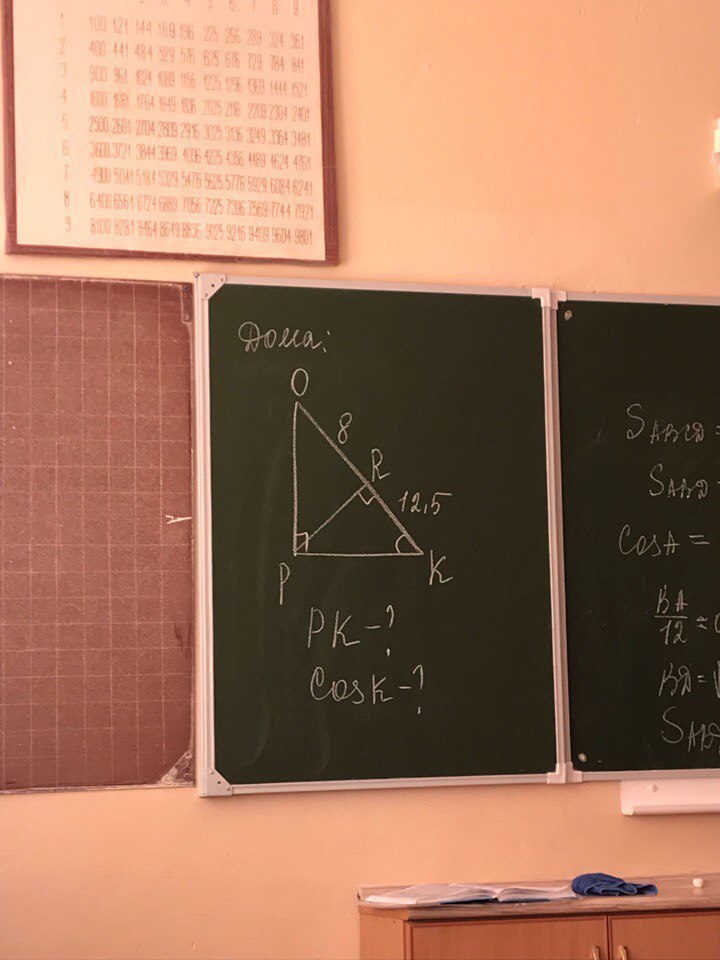 1 100 121 144 169 196 225 256 289 324 361
2 400 441 484 529 576 625 676 729 784 841
3 900 961 1024 1089 1156 1225 1296 1369 1444 1521
4 1600 1681 1764 1849 1936 2025 2116 2209 2304 2401
5 2500 2601 2704 2809 2916 3025 3136 3249 3364 3481
6 3600 3721 3844 3969 4096 4225 4356 4489 4624 4761
7 4900 5041 5184 5329 5476 5625 5776 5929 6084 6241
8 6400 6561 6724 6889 7056 7225 7396 7569 7744 7921
9 8100 8281 8464 8649 8836 9025 9216 9409 9604 9801
Дома:
O
8
R
12,5
P
K
PK-?
CosK-?
S ABCD =
S ABD
CosA =
BA/12 =
BD =